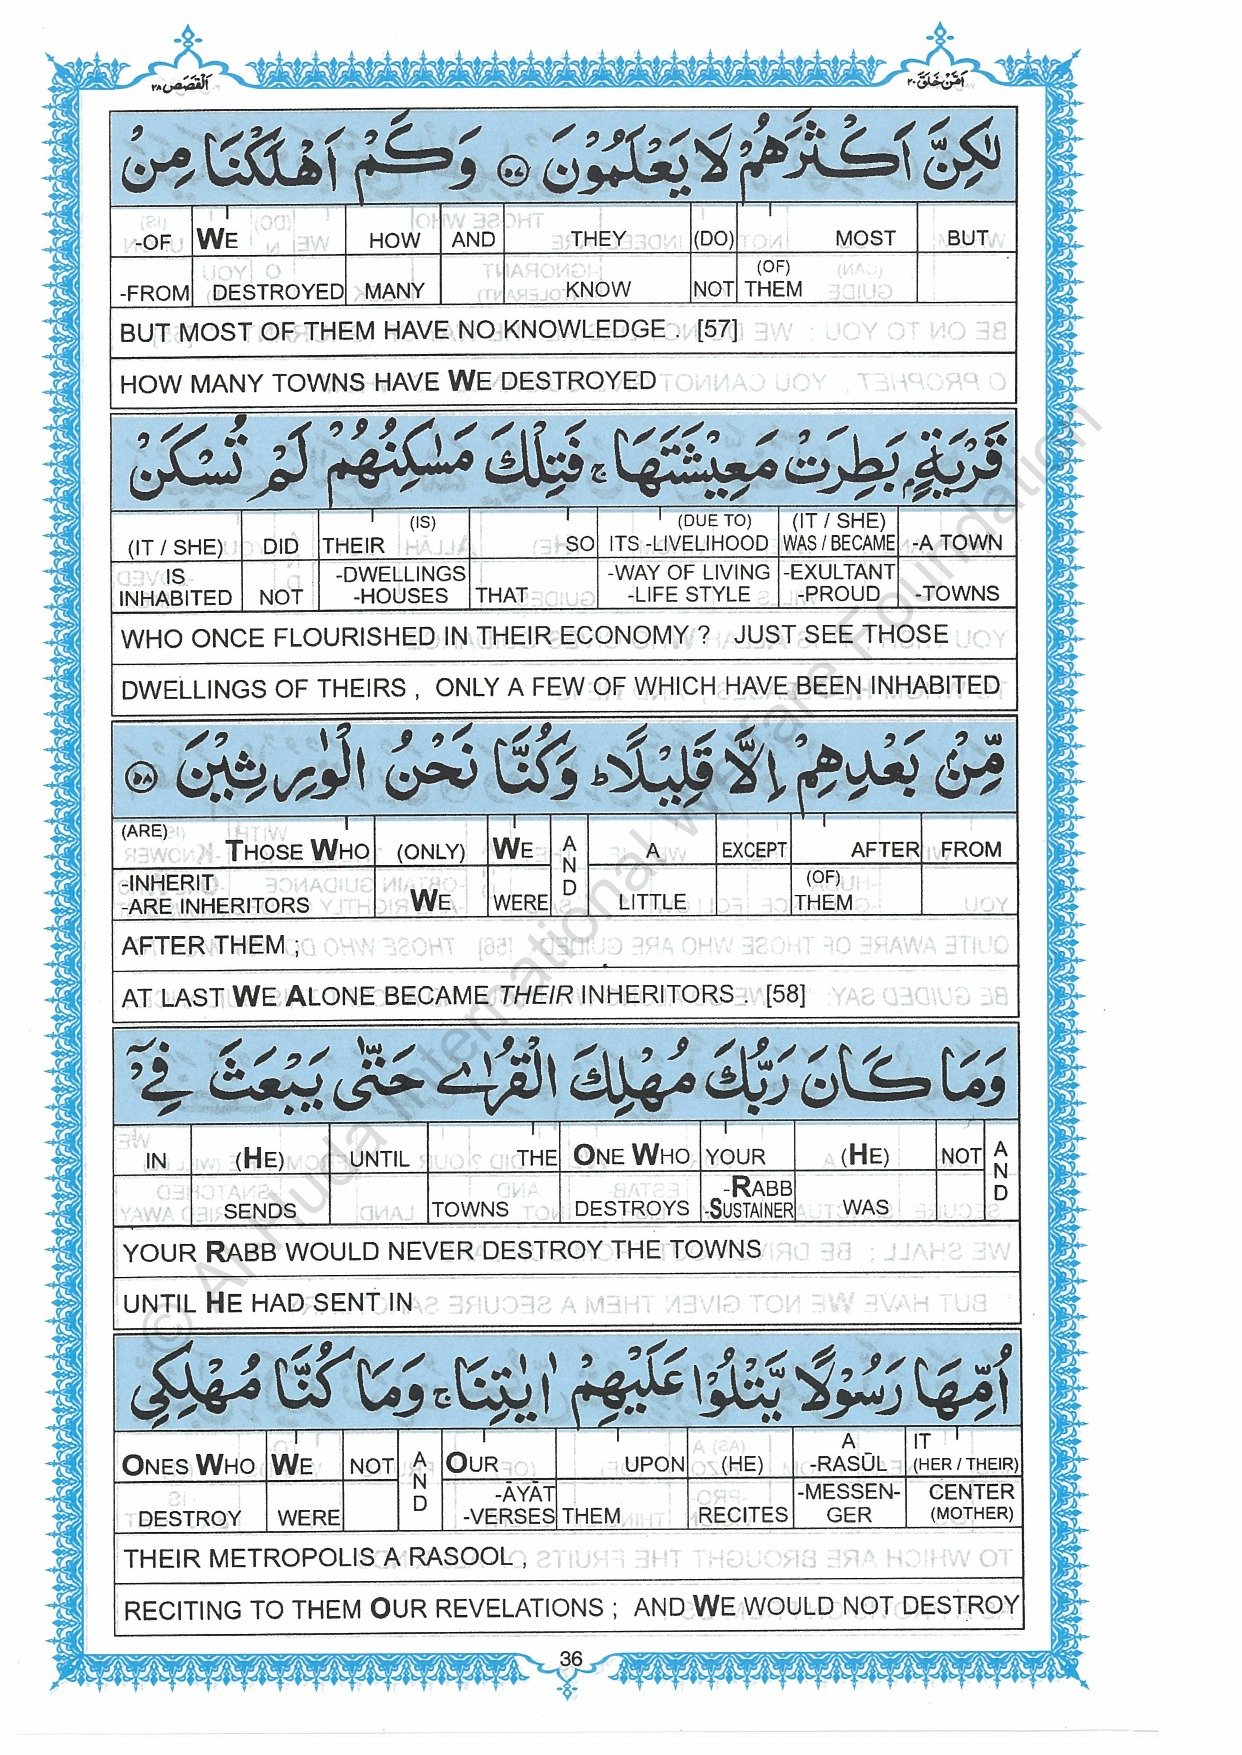 اَمَّنْ خَلَقَ ٢٠
اَلْقَصَص ٢٨
لٰكِنَّ اَكْثَرَهُمْ لَا يَعْلَمُوْنَ ٥٧ وَكَمْ اَهْلَكْنَا مِنْ
-OF WE HOW AND THEY (DO) MOST BUT
-FROM DESTROYED MANY KNOW NOT (OF) THEM
BUT MOST OF THEM HAVE NO KNOWLEDGE . [57]
HOW MANY TOWNS HAVE WE DESTROYED
قَرْيَةٍۭ بَطِرَتْ مَعِيْشَتَهَا ۚ فَتِلْكَ مَسٰكِنُهُمْ لَمْ تُسْكَنْ
(IT / SHE) DID THEIR (IS) SO ITS -LIVELIHOOD (DUE TO) WAS / BECAME (IT / SHE) -A TOWN
IS INHABITED NOT -DWELLINGS -HOUSES THAT -WAY OF LIVING -LIFE STYLE -EXULTANT -PROUD -TOWNS
WHO ONCE FLOURISHED IN THEIR ECONOMY ? JUST SEE THOSE
DWELLINGS OF THEIRS , ONLY A FEW OF WHICH HAVE BEEN INHABITED
مِّنْۢ بَعْدِهِمْ اِلَّا قَلِيْلًا ؕ وَكُنَّا نَحْنُ الْوٰرِثِيْنَ ٥٨
(ARE) THOSE WHO (ONLY) WE AND A EXCEPT AFTER FROM
-INHERIT -ARE INHERITORS WE WERE LITTLE (OF) THEM
AFTER THEM ;
AT LAST WE ALONE BECAME THEIR INHERITORS . [58]
وَمَا كَانَ رَبُّكَ مُهْلِكَ الْقُرٰى حَتّٰى يَبْعَثَ فِيْٓ
IN (HE) UNTIL THE ONE WHO YOUR (HE) NOT AND
SENDS TOWNS DESTROYS -RABB -SUSTAINER WAS
YOUR RABB WOULD NEVER DESTROY THE TOWNS
UNTIL HE HAD SENT IN
اُمِّهَا رَسُوْلًا يَّتْلُوْا عَلَيْهِمْ اٰيٰتِنَا ۚ وَمَا كُنَّا مُهْلِكِى
ONES WHO WE NOT AND OUR UPON (HE) A -RASŪL IT (HER / THEIR)
DESTROY WERE -ĀYĀT -VERSES THEM RECITES -MESSEN- GER CENTER (MOTHER)
THEIR METROPOLIS A RASOOL ,
RECITING TO THEM OUR REVELATIONS ; AND WE WOULD NOT DESTROY
36
© Al Huda International Welfare Foundation